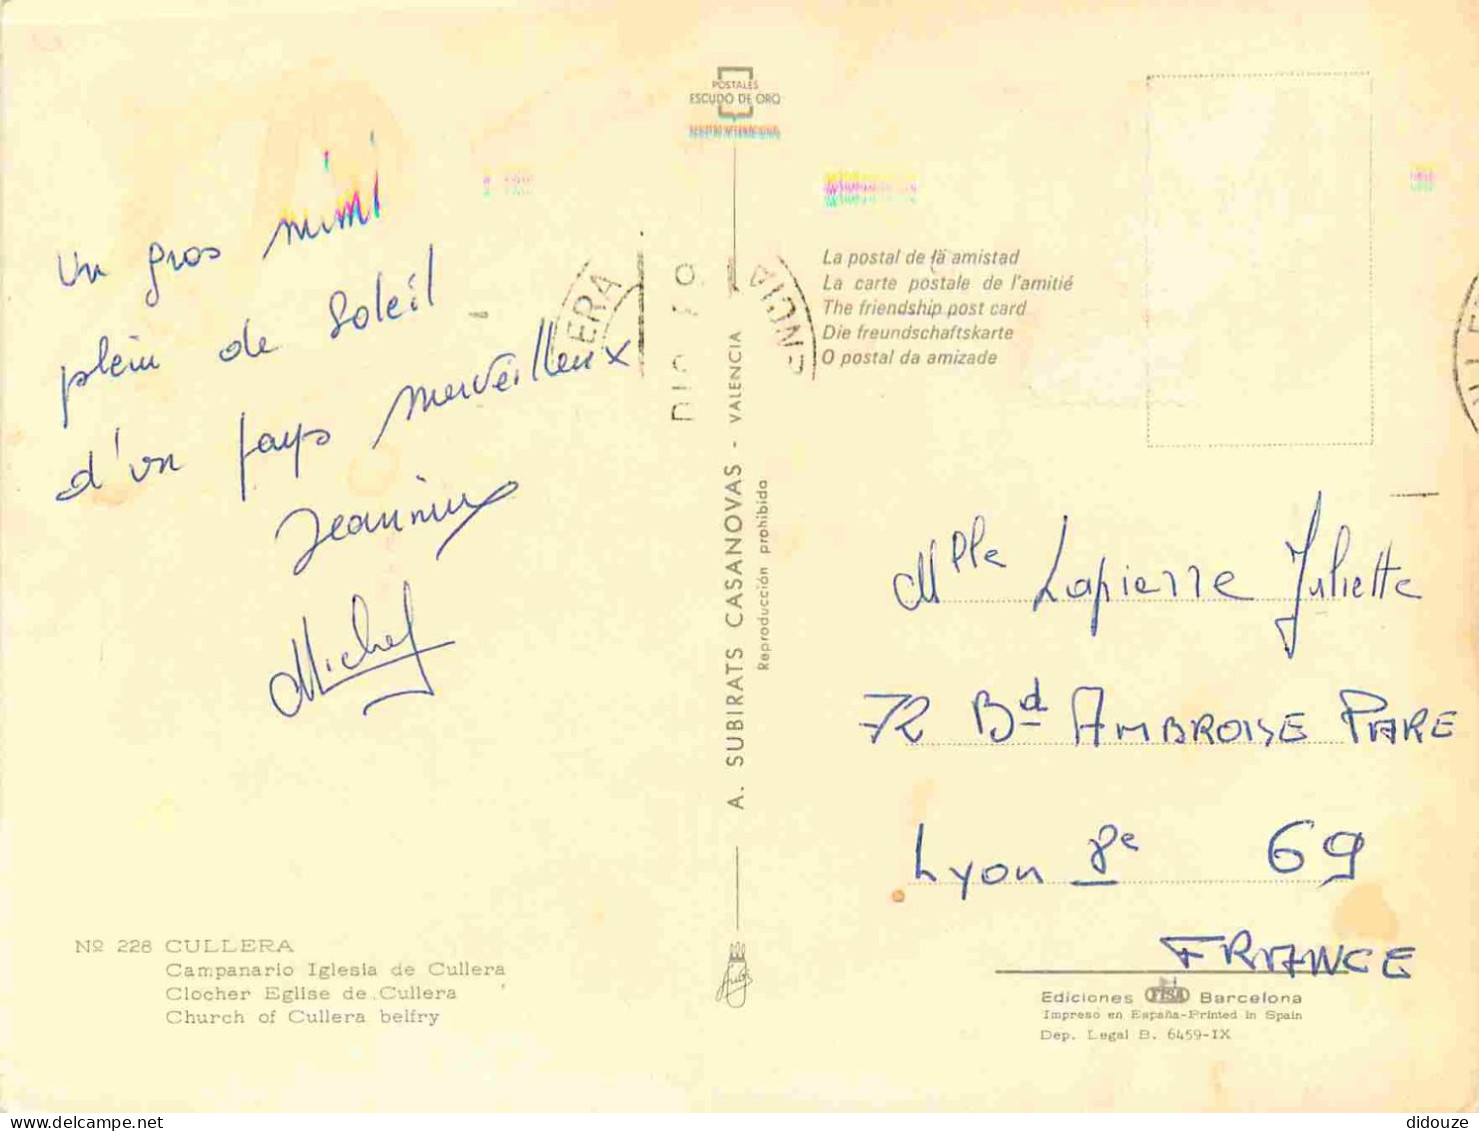 POSTALES
ESCUDO DE ORO
Un gros mimi
plein de soleil
d'un pays merveilleux
Jeannine
Michel
Nº 228 CULLERA
Campanario Iglesia de Cullera
Clocher Eglise de Cullera
Church of Cullera belfry
A. SUBIRATS CASANOVAS - VALENCIA
Reproducción prohibida
La postal de la amistad
La carte postale de l'amitié
The friendship post card
Die freundschaftskarte
O postal da amizade
Mlle Lapierre Juliette
72 Bd AMBROISE PARE
Lyon 8e 69
FRANCE
Ediciones FISA Barcelona
Impreso en España-Printed in Spain
Dep. Legal B. 6459-IX
delcampe.net
didouze